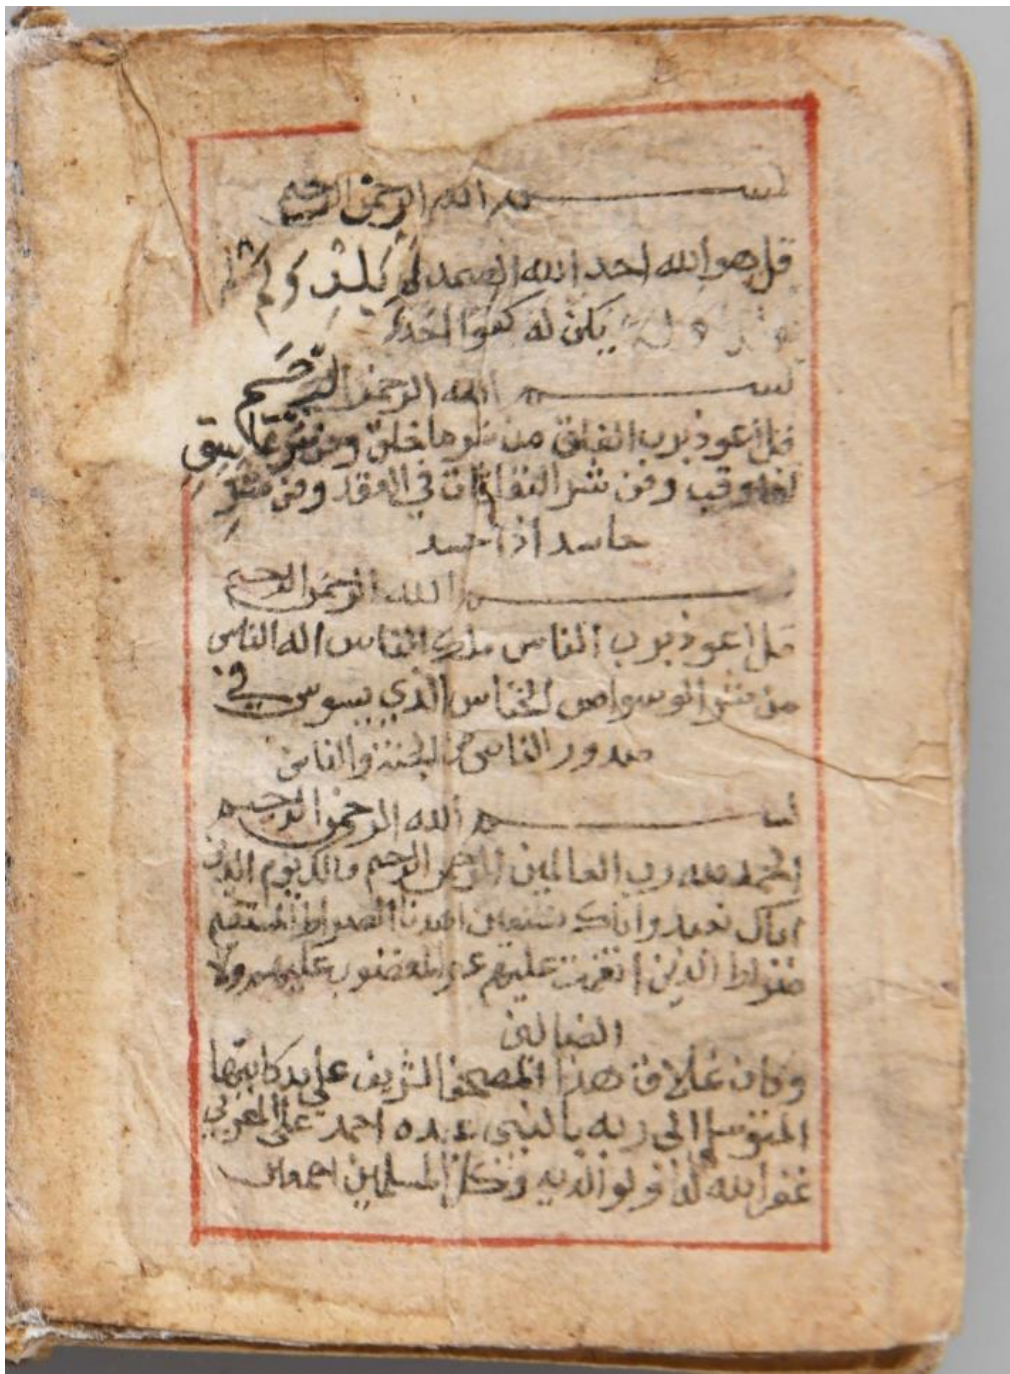 بســـم الله الرحمن الرحيم
قل هو الله احد الله الصمد لم يلد ولم
يكن له كفوا احد
بســـم الله الرحمن الرحيم
قل اعوذ برب الفلق من شر ما خلق ومن شر غاسق
اذا وقب ومن شر النفاثات في العقد ومن شر
حاسد اذا حسد
الله الرحمن الرحيم
قل اعوذ برب الناس ملك الناس اله الناس
من شر الوسواس الخناس الذي يسوس في
صدور الناس من الجنة والناس
بســـم الله الرحمن الرحيم
الحمد لله رب العالمين الرحمن الرحيم مالك يوم الدين
اياك نعبد واياك نستعين اهدنا الصراط المستقيم
صراط الذين انعمت عليهم غير المغضوب عليهم ولا
الضالين
وكان غلاق هذا المصحف الشريف على يد كاتبها
المتوسل الى ربه بالنبي عبده احمد على المغربي
غفر الله له ولوالديه وكل المسلمين امين